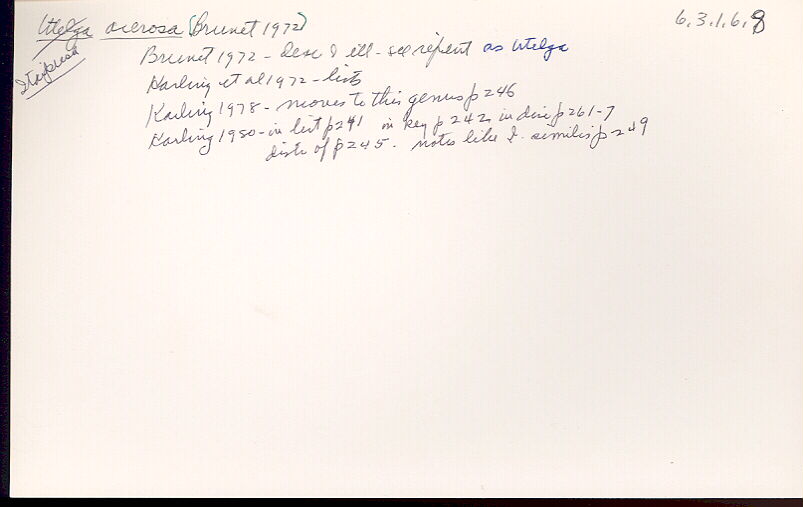 Utelga acerosa (Brunet 1972)
6.3.1.6.8
Itaipusa
Brunet 1972 - desc & ill - see reprint as Utelga
Karling et al 1972 - lists
Karling 1978 - moves to this genus p 246
Karling 1980 - in list p 241 in key p 242 in disc p 261-7
distr of p 245. notes like I. similis p 249